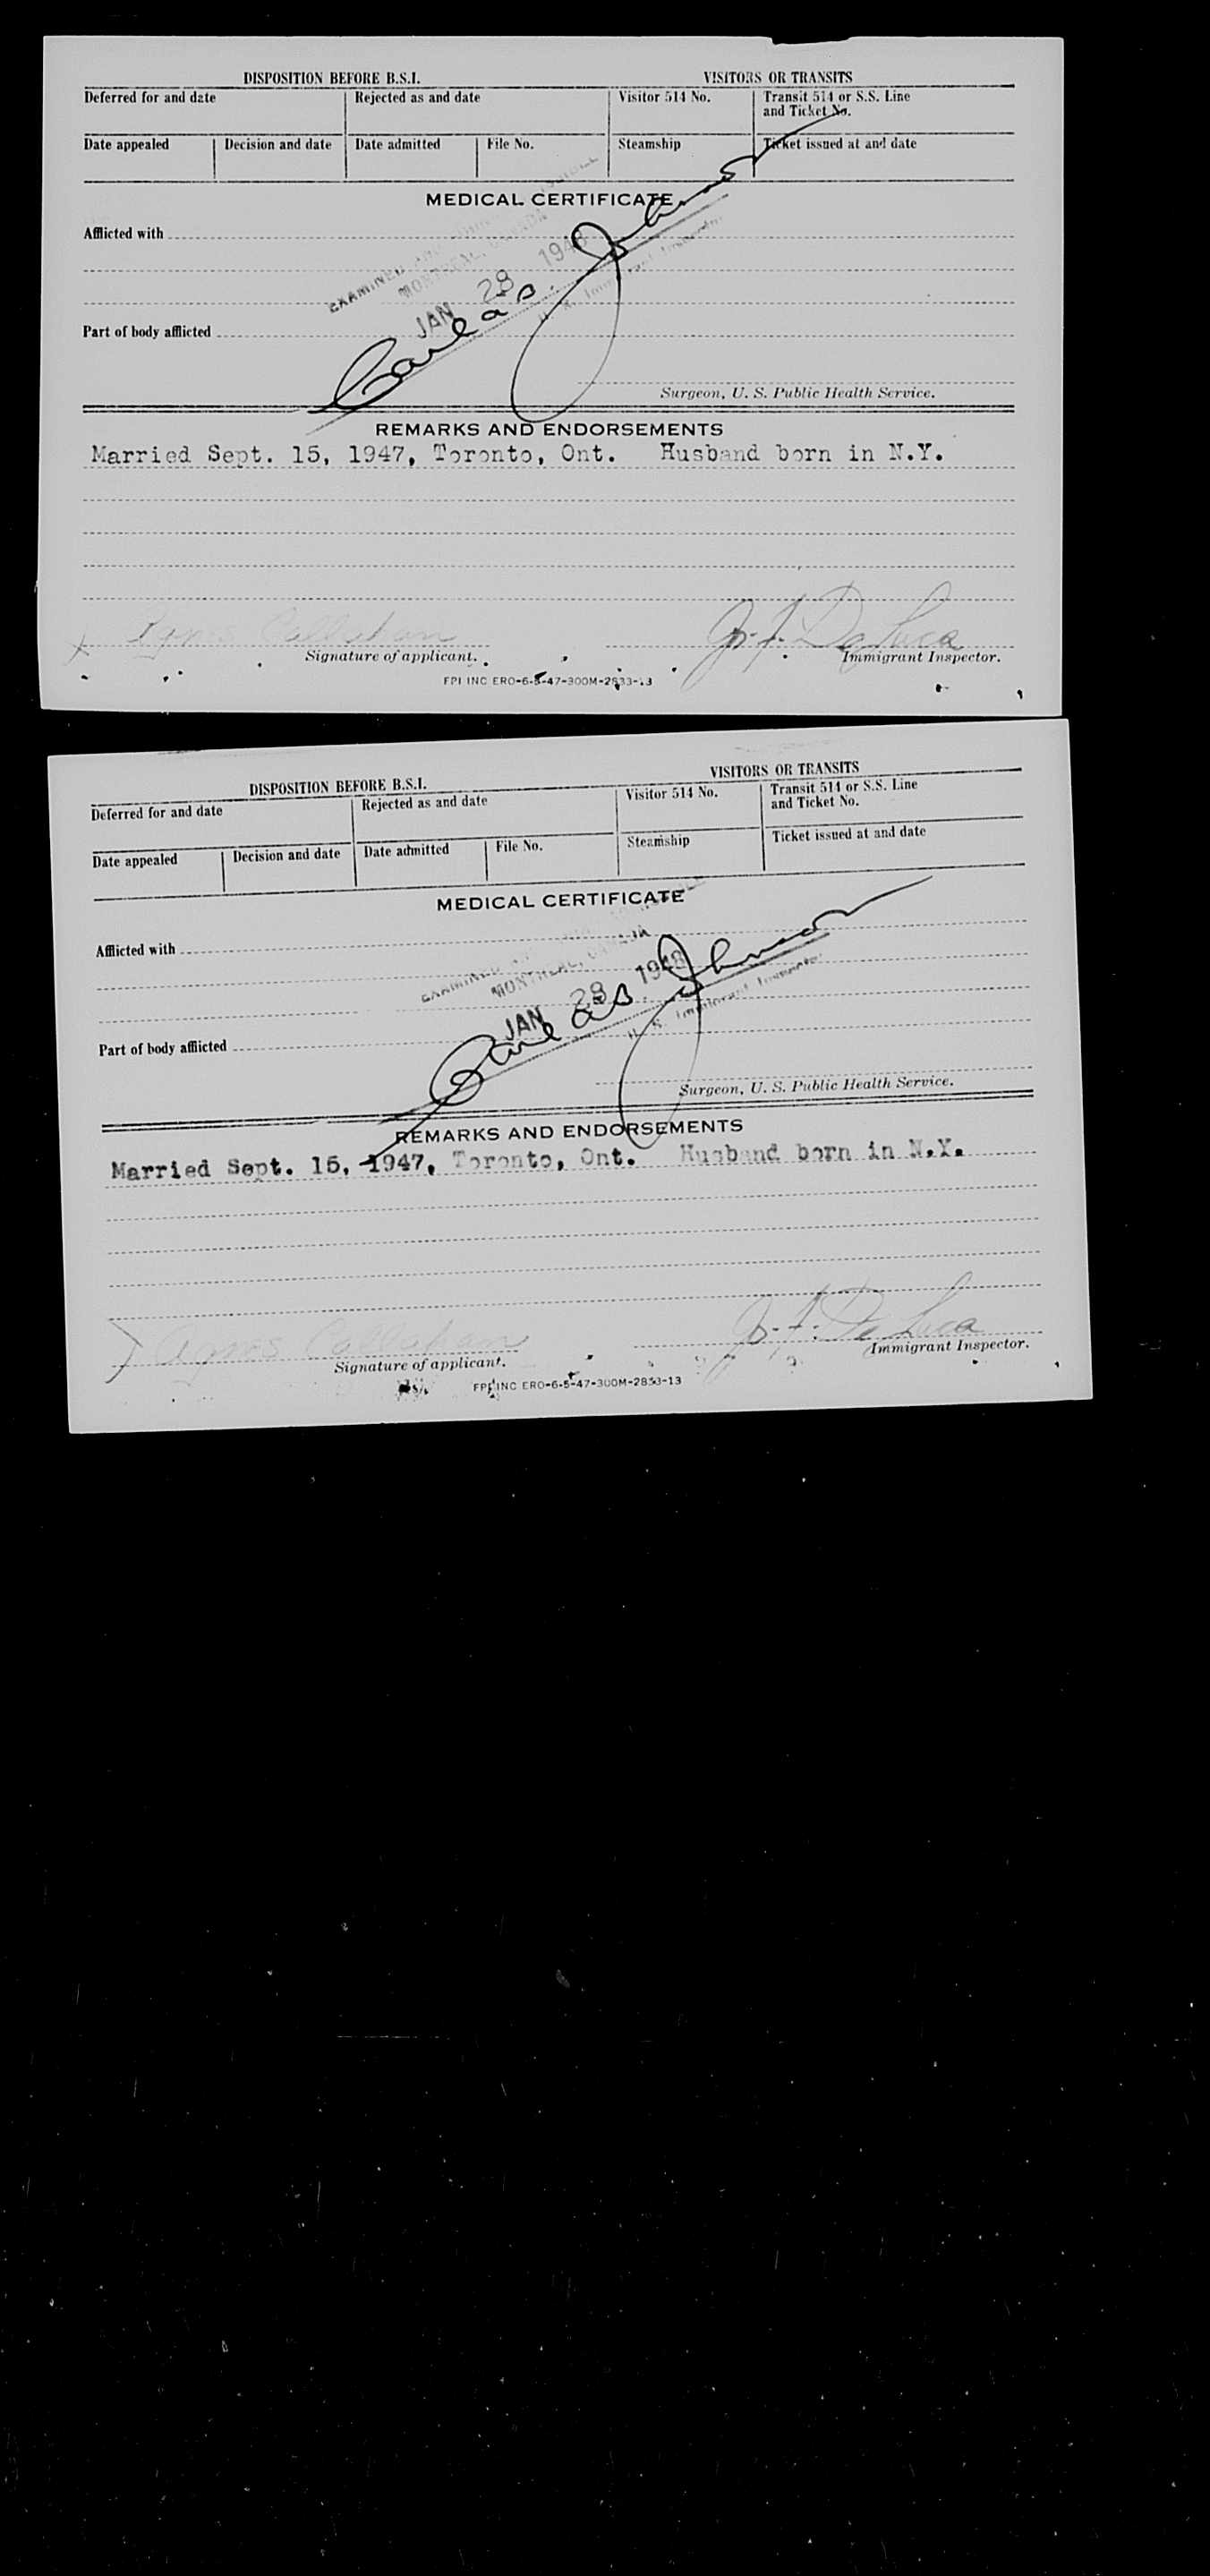 DISPOSITION BEFORE B.S.I. VISITORS OR TRANSITS
Deferred for and date Rejected as and date Visitor 514 No. Transit 514 or S.S. Line and Ticket No.
Date appealed Decision and date Date admitted File No. Steamship Ticket issued at and date
MEDICAL CERTIFICATE
Afflicted with
EXAMINED
MONTREAL, CANADA
JAN 28 1948
Johnson
U. S. Immigrant Inspector
Part of body afflicted
Surgeon, U. S. Public Health Service.
REMARKS AND ENDORSEMENTS
Married Sept. 15, 1947, Toronto, Ont. Husband born in N.Y.
Agnes Callahan J. F. De Luca
Signature of applicant. Immigrant Inspector.
FPI INC ERO-6-5-47-300M-2833-13
DISPOSITION BEFORE B.S.I. VISITORS OR TRANSITS
Deferred for and date Rejected as and date Visitor 514 No. Transit 514 or S.S. Line and Ticket No.
Date appealed Decision and date Date admitted File No. Steamship Ticket issued at and date
MEDICAL CERTIFICATE
Afflicted with
EXAMINED
MONTREAL, CANADA
JAN 28 1948
Johnson
U. S. Immigrant Inspector
Part of body afflicted
Surgeon, U. S. Public Health Service.
REMARKS AND ENDORSEMENTS
Married Sept. 15, 1947, Toronto, Ont. Husband born in N.Y.
Agnes Callahan J. F. De Luca
Signature of applicant. Immigrant Inspector.
FPI INC ERO-6-5-47-300M-2833-13